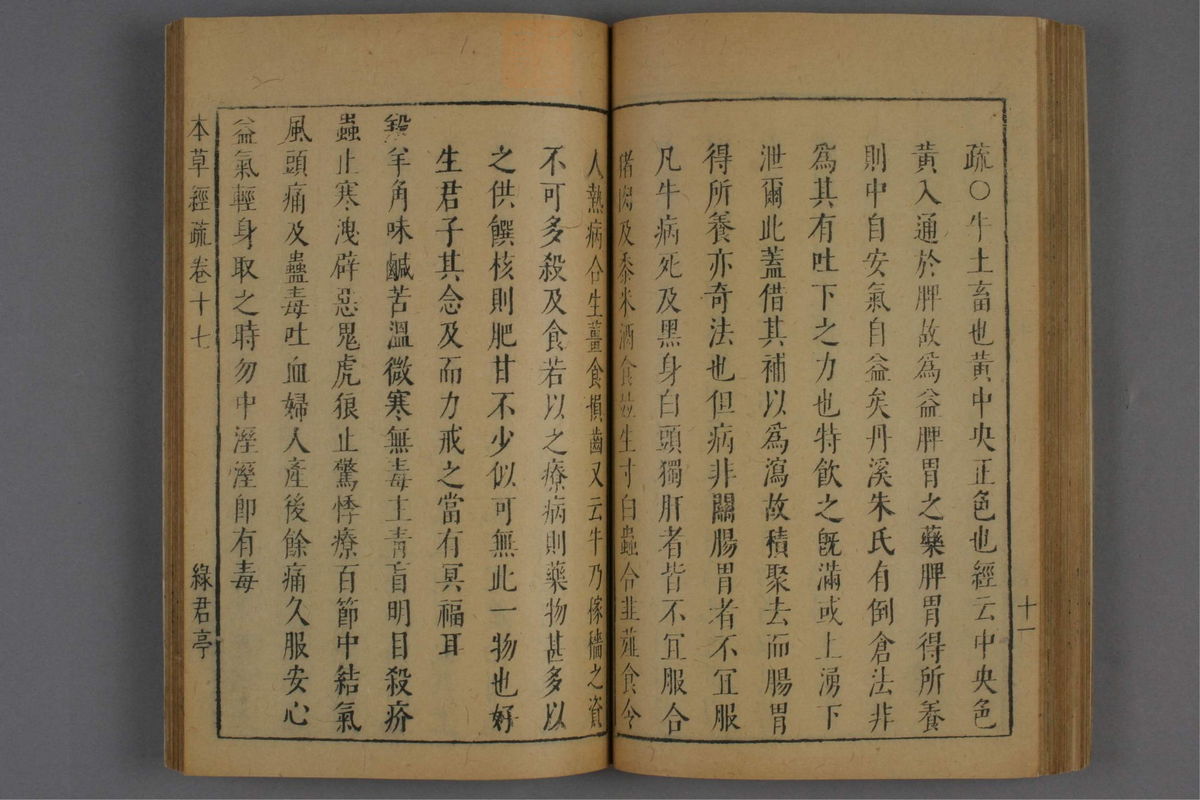 十一
疏〇牛土畜也黃中央正色也經云中央色
黃入通於脾故爲益脾胃之藥脾胃得所養
則中自安氣自益矣丹溪朱氏有倒倉法非
爲其有吐下之力也特飲之旣滿或上湧下
泄爾此蓋借其補以爲瀉故積聚去而腸胃
得所養亦奇法也但病非關腸胃者不宜服
凡牛病死及黑身白頭獨肝者皆不宜服合
猪肉及黍米酒食並生寸白蟲合韭薤食令
人熱病合生薑食損齒又云牛乃稼穡之資
不可多殺及食若以之療病則藥物甚多以
之供饌核則肥甘不少似可無此一物也好
生君子其念及而力戒之當有冥福耳
羖羊角味鹹苦溫微寒無毒主青盲明目殺疥
蟲止寒洩辟惡鬼虎狼止驚悸療百節中結氣
風頭痛及蠱毒吐血婦人產後餘痛久服安心
益氣輕身取之時勿中溼溼卽有毒
本草經疏卷十七
綠君亭